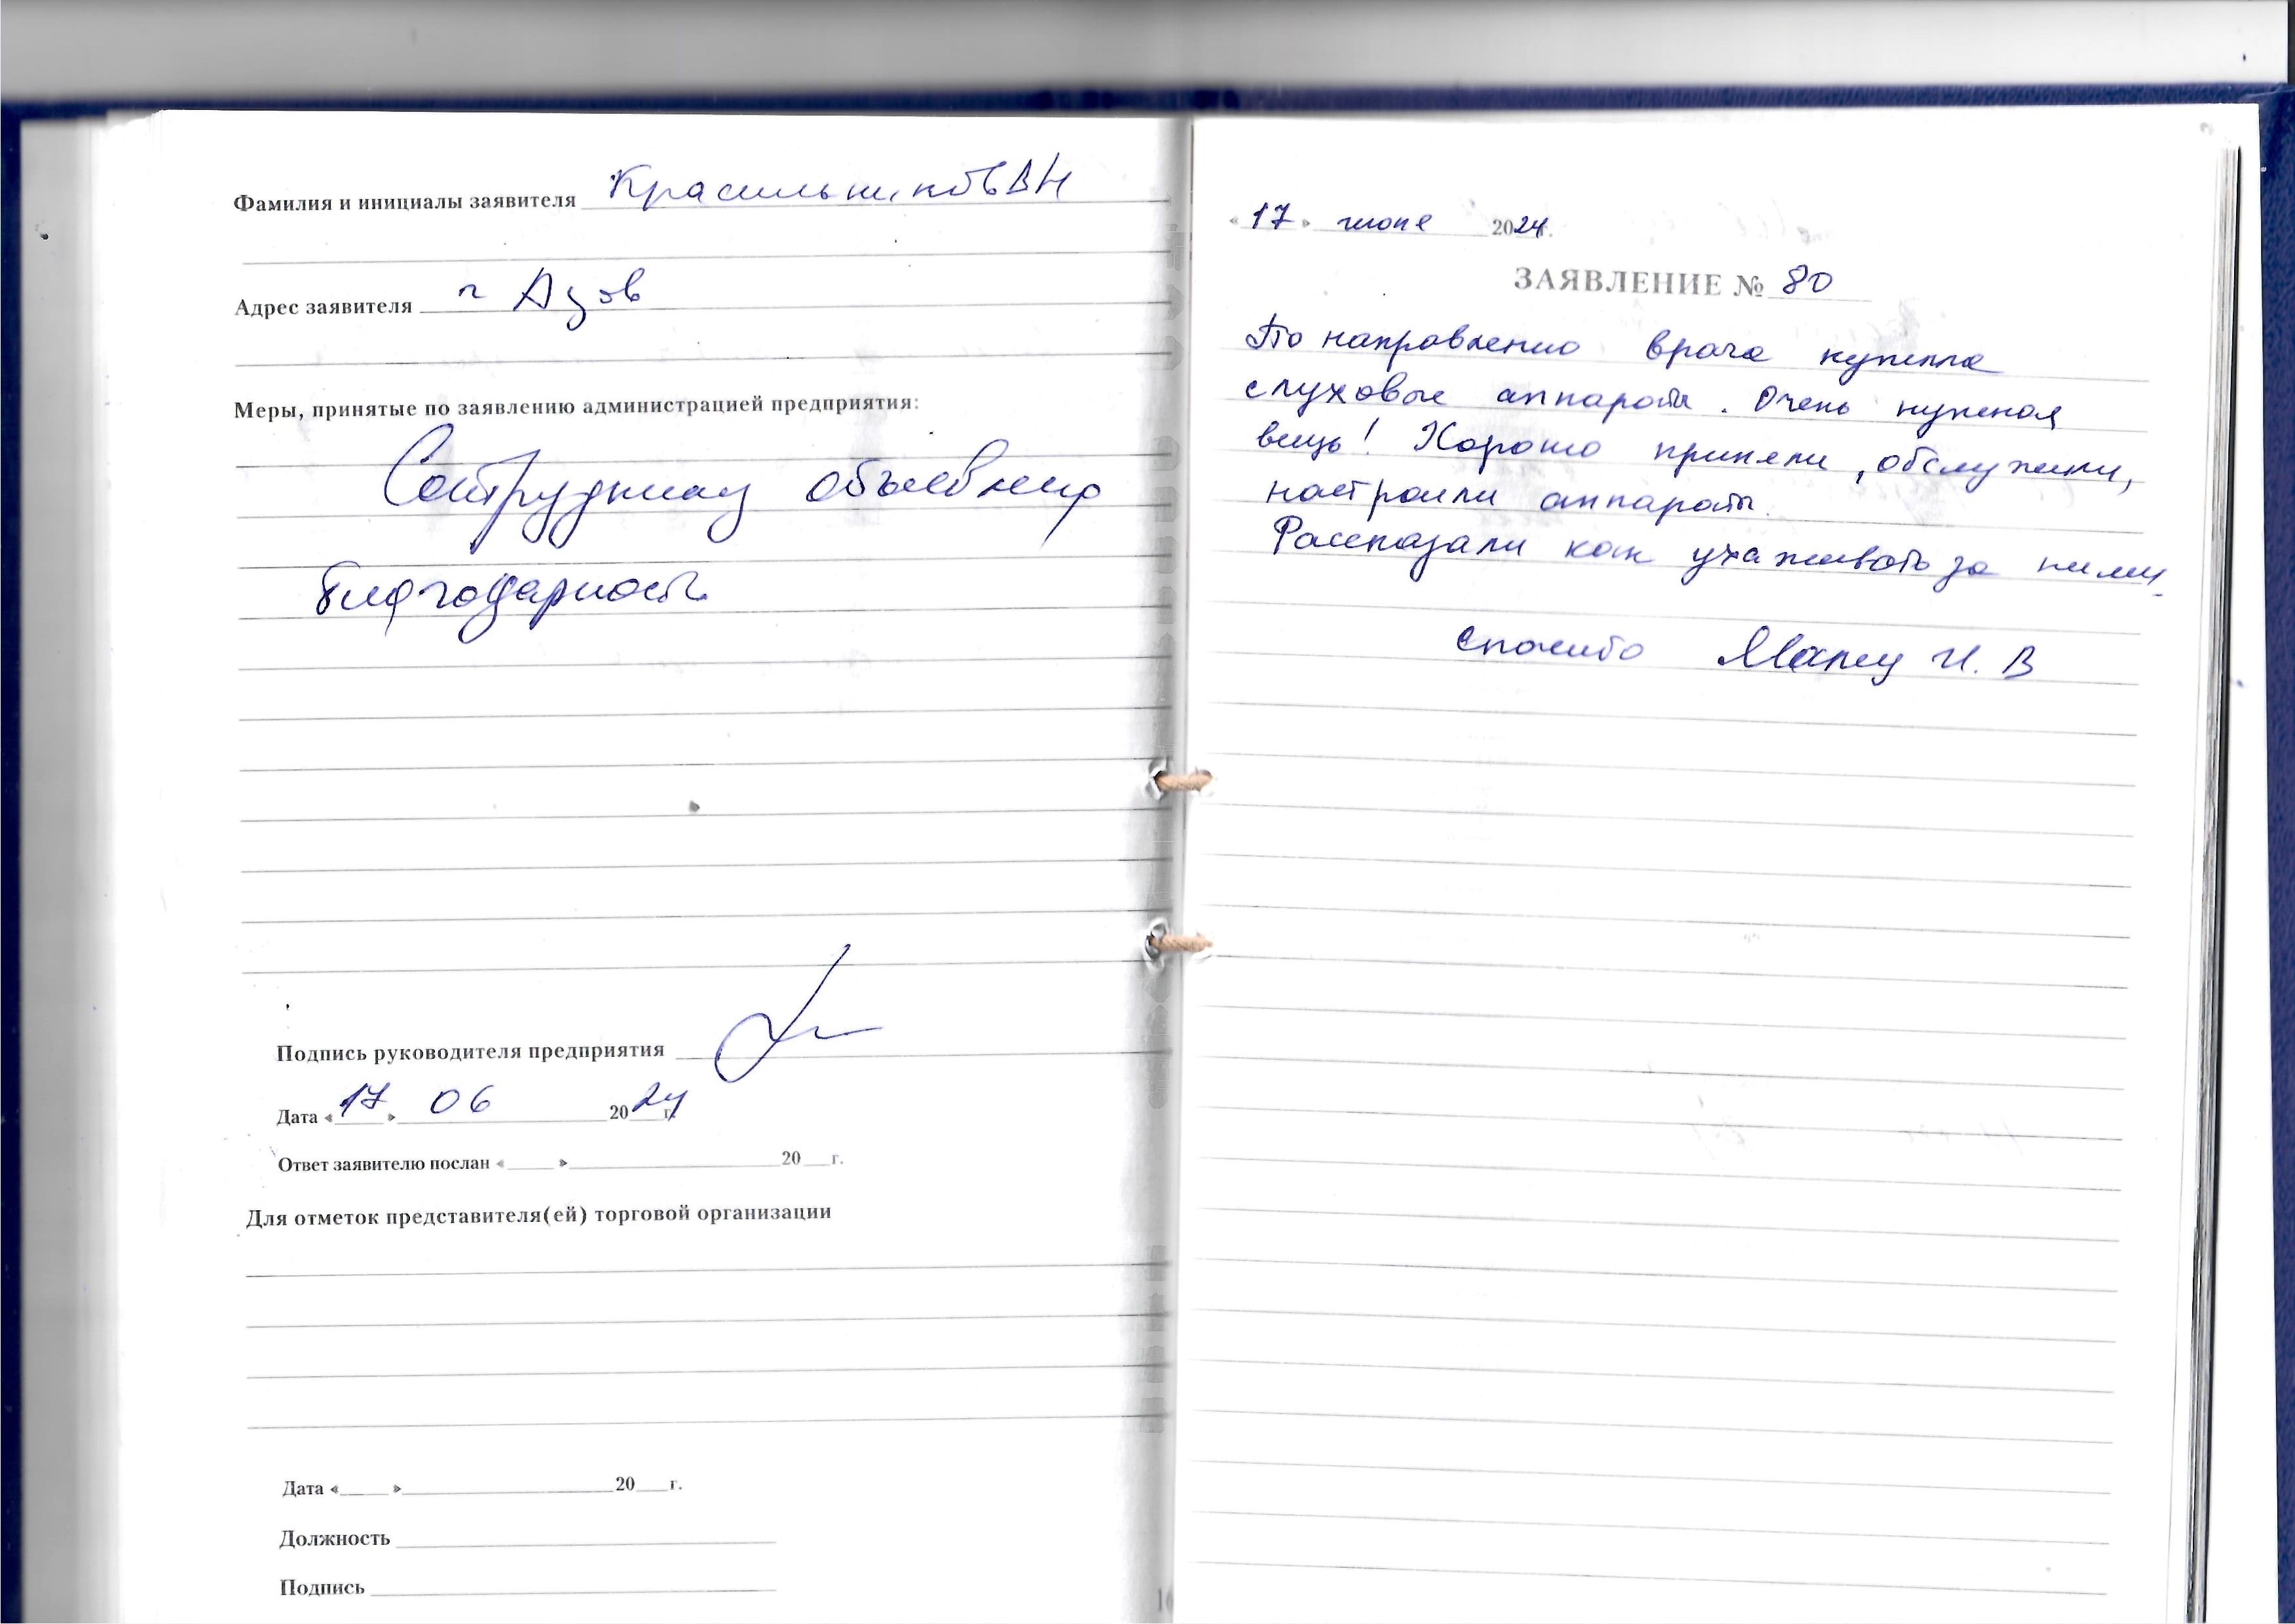 Фамилия и инициалы заявителя Красильников ВН
Адрес заявителя г Азов
Меры, принятые по заявлению администрацией предприятия:
Сотруднику объявлена
благодарность
Подпись руководителя предприятия
Дата «17» 06 2024 г.
Ответ заявителю послан «____» ____ 20__г.
Для отметок представителя(ей) торговой организации
Дата «____» ____ 20__г.
Должность
Подпись
«17» июня 2024г.
ЗАЯВЛЕНИЕ № 80
По направлению врача купила
слуховые аппараты. Очень нужная
вещь! Хорошо приняли, обслужили,
настроили аппараты.
Рассказали как ухаживать за ними.
Спасибо И. В